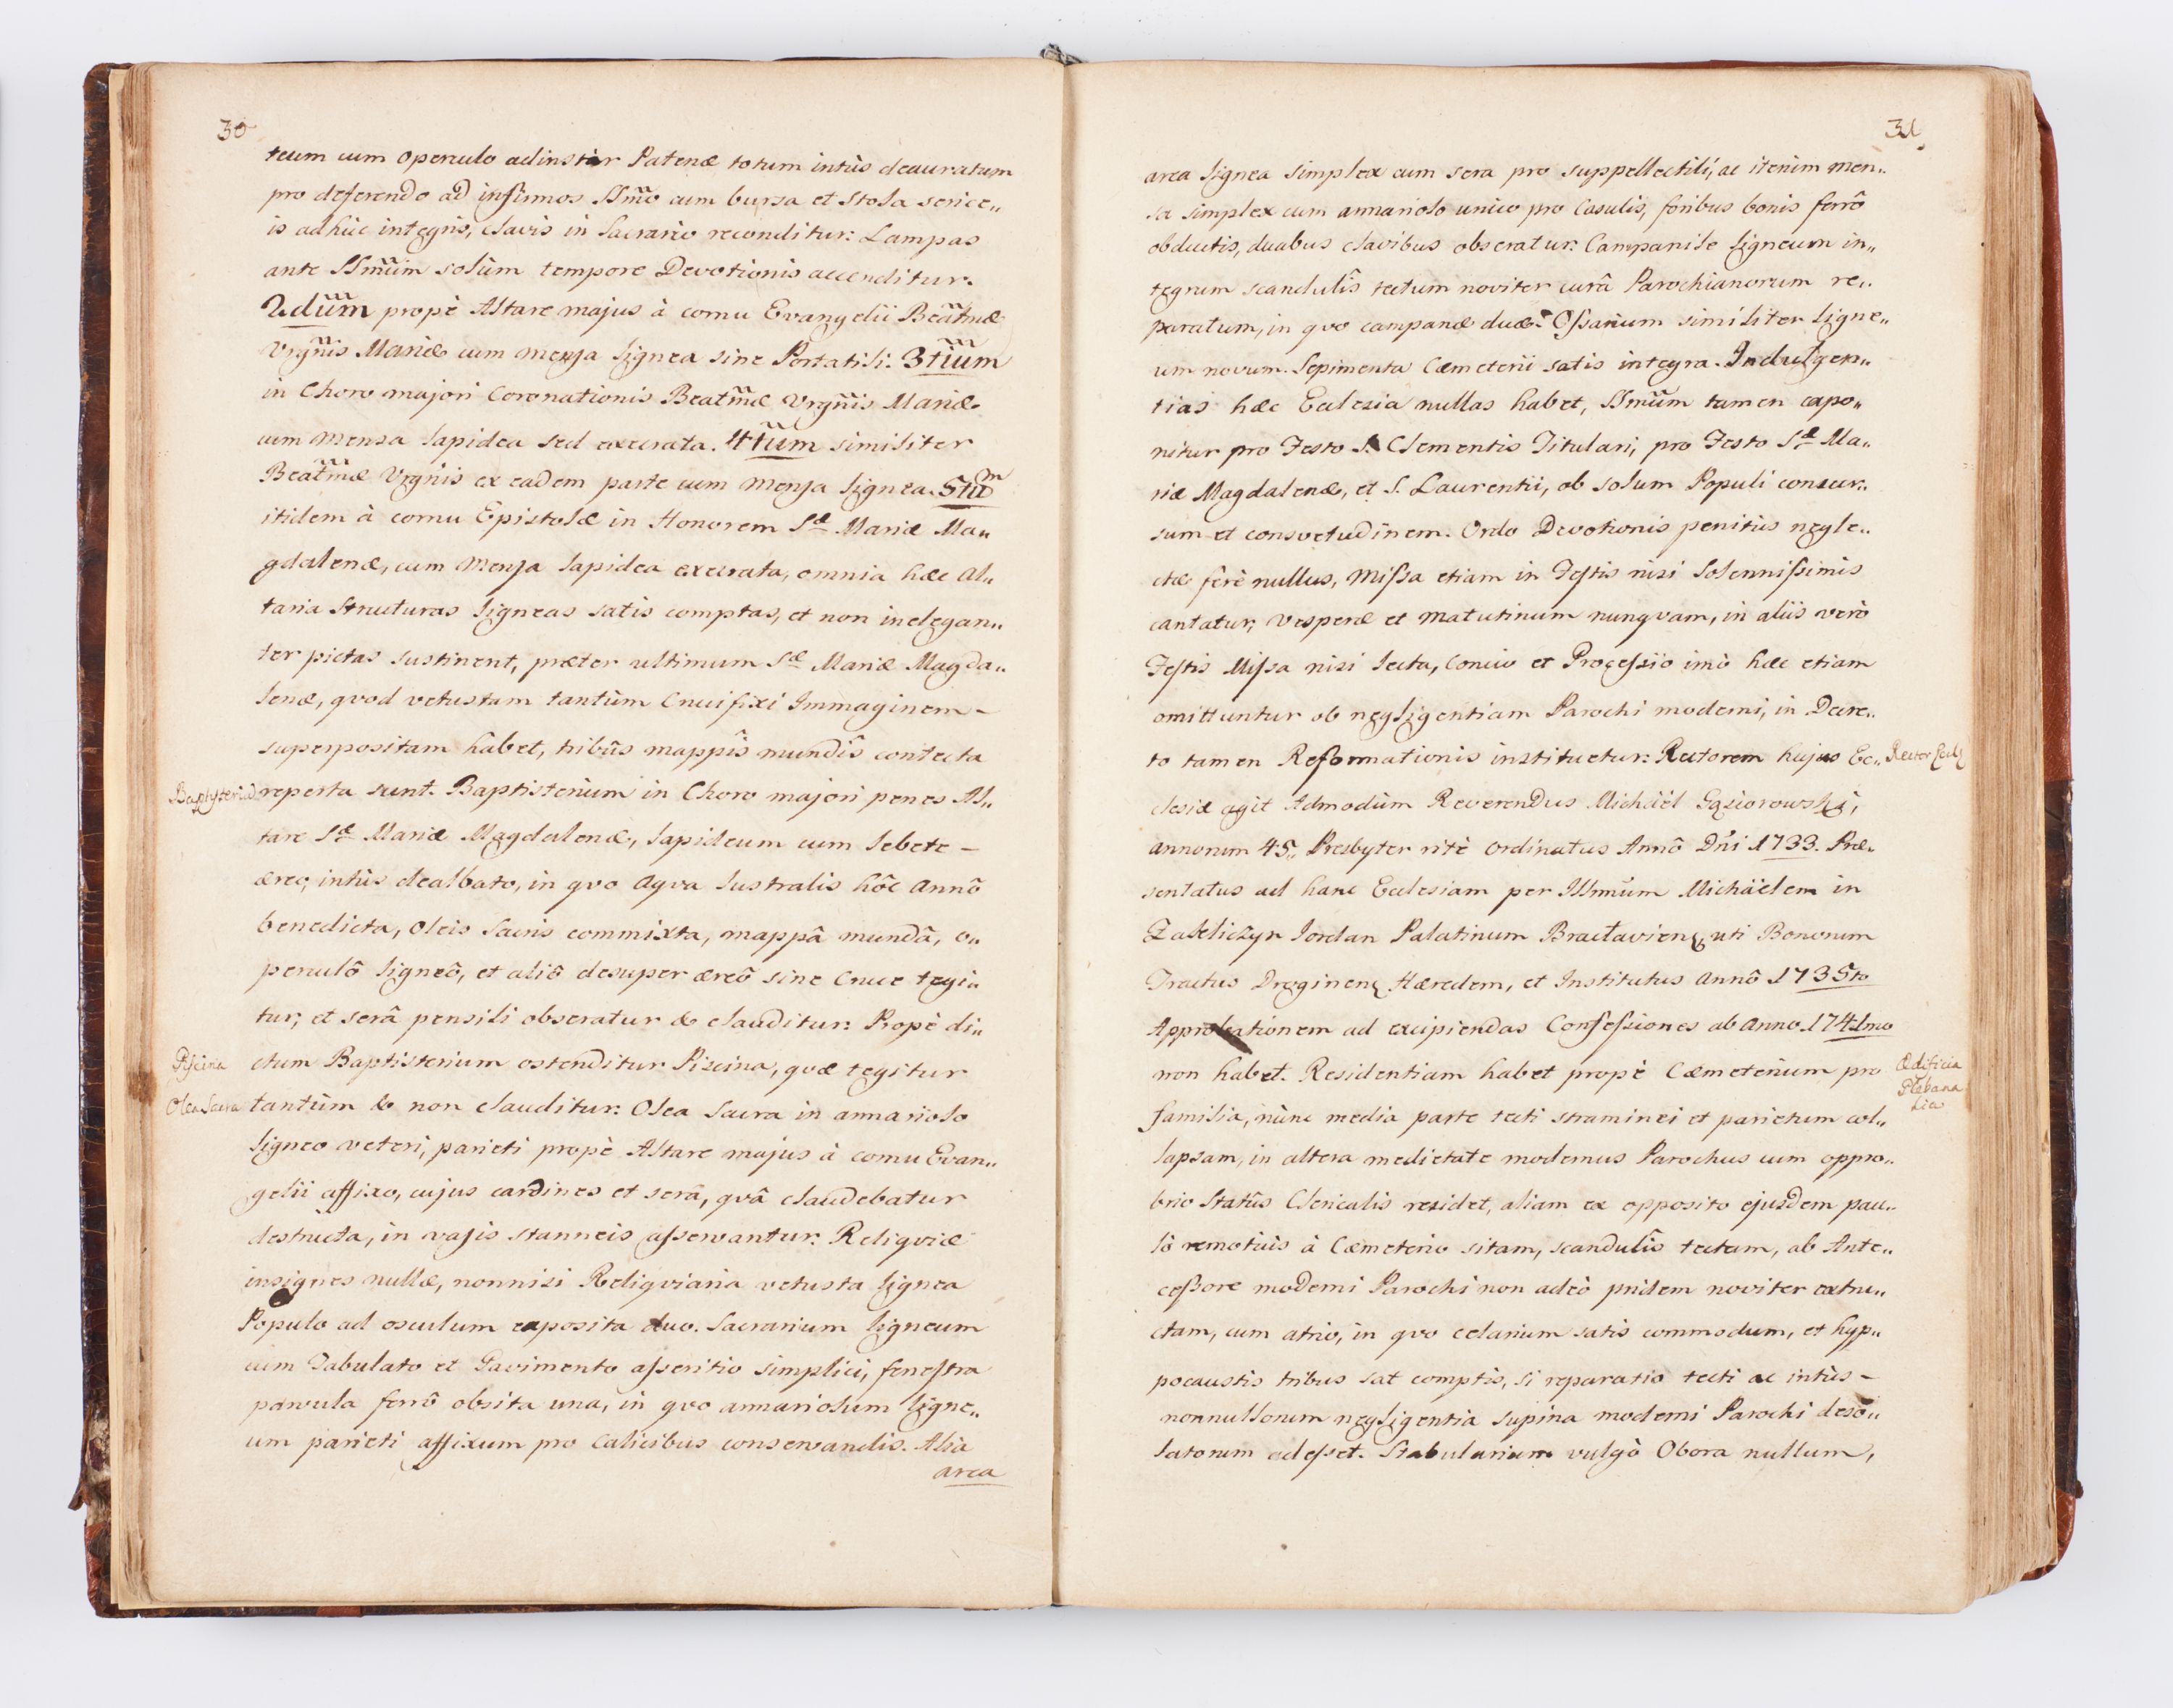 30
teum cum operculo adinstar Patenæ totum intùs deauratum
pro deferendo ad infirmos SSm̃o cum bursa et stola serice„
is adhùc integris, clavis in Sacrario reconditur: Lampas
ante SSmũm solùm tempore Devotionis accenditur.
2dũm propè Altare majus à cornu Evangelii Beatm̃æ
Vrgñis Mariæ cum mensa lignea sine Portatili. 3tĩum
in Choro majori Coronationis Beatm̃æ Vrgñis Mariæ
cum mensa lapidea sed execrata. 4tũm similiter
Beatm̃æ Vrgñis ex eadem parte cum mensa lignea. 5tũm
itidem à cornu Epistolæ in Honorem Sæ Mariæ Ma„
gdalenæ, cum mensa lapidea execrata, omnia hæc Al„
taria structuras ligneas satis comptas, et non inelegan„
ter pictas sustinent, præter ultimum Sæ Mariæ Magda„
lenæ, qvod vetustam tantùm Crucifixi Immaginem –
superpositam habet, tribûs mappîs mundîs contecta
Baptysteriũ reperta sunt. Baptisterium in Choro majori penes Al„
tare Sæ Mariæ Magdalenæ, lapideum cum lebete –
æreo, intùs dealbato, in qvo Aqva lustralis hôc Annô
benedicta, Oleis Sacris commixta, mappâ mundâ, o„
perculô ligneô, et aliô desuper æreô sine Cruce tegi„
tur, et serâ pensili obseratur & clauditur: Propè di„
Piscina ctum Baptisterium ostenditur Piscina, qvæ tegitur
Olea Sacra tantùm & non clauditur: Olea Sacra in armariolo
ligneo veteri, parieti propè Altare majus à cornu Evan„
gelii affixo, cujus cardines et serâ, qvâ claudebatur
destructa, in vasis stanneis asservantur: Reliqviæ
insignes nullæ, nonnisi Reliqviaria vetusta lignea
Populo ad osculum exposita duo. Sacrarium ligneum
cum Tabulato et Pavimento asseritio simplici, fenestra
parvula ferrô obsita una, in qvo armariolum ligne„
um parieti affixum pro Calicibus conservandis. Alia
area
31.
area lignea simplex cum sera pro suppellectili, ac iterùm men„
sa simplex cum armariolo unico pro Casulis, foribus bonis ferrô
obductis, duabus clavibus obseratur: Campanile ligneum in„
tegrum scandulîs tectum noviter curâ Parochianorum re„
paratum, in qvo campanæ duæ: Ossarium similiter ligne„
um novum. Sepimenta Cæmeterii satis integra. Indulgen„
tias hæc Ecclesia nullas habet, SSmũm tamen expo„
nitur pro Festo S. Clementis Titulari, pro Festo Sæ Ma„
riæ Magdalenæ, et S. Laurentii, ob solum Populi concur„
sum et consvetudinem. Ordo Devotionis penitùs negle„
ctæ ferè nullus, Missa etiam in Festis nisi Solennissimis
cantatur, Vesperæ et Matutinum nunqvam, in aliis verò
Festis Missa nisi lecta, Concio et Processio imò hæc etiam
omittuntur ob negligentiam Parochi moderni, in Decre„
to tamen Reformationis instituetur: Rectorem hujus Ec„ Rector Eccl
clesiæ agit Admodùm Reverendus Michaël Gąsiorowski,
annorum 45„ Presbyter ritè Ordinatus Annô Dñi 1733. Præ„
sentatus ad hanc Ecclesiam per Illmũm Michäelem in
Zakliczyn Iordan Palatinum Bractavien, uti Bonorum
Tractus Droginen Hæredem, et Institutus Annô 1735to
Approbationem ad excipiendas Confessiones ab Anno 1741mo
non habet. Residentiam habet propè Cæmeterium pro Ædificia Plebanalia
familia, nùnc media parte tecti straminei et parietum col„
lapsam, in altera medietate modernus Parochus cum oppro„
brio Statûs Clericalis residet, aliam ex opposito ejusdem pau„
lò remotiùs à Cæmeterio sitam, scandulîs tectam, ab Ante„
cessore moderni Parochi non adeò pridem noviter extru„
ctam, cum atrio, in qvo celarium satis commodum, et hyp„
pocaustis tribus sat comptis, si reparatio tecti ac intùs –
nonnullorum negligentia supina moderni Parochi deso„
latorum adesset. Stabularium vulgò Obora nullum,